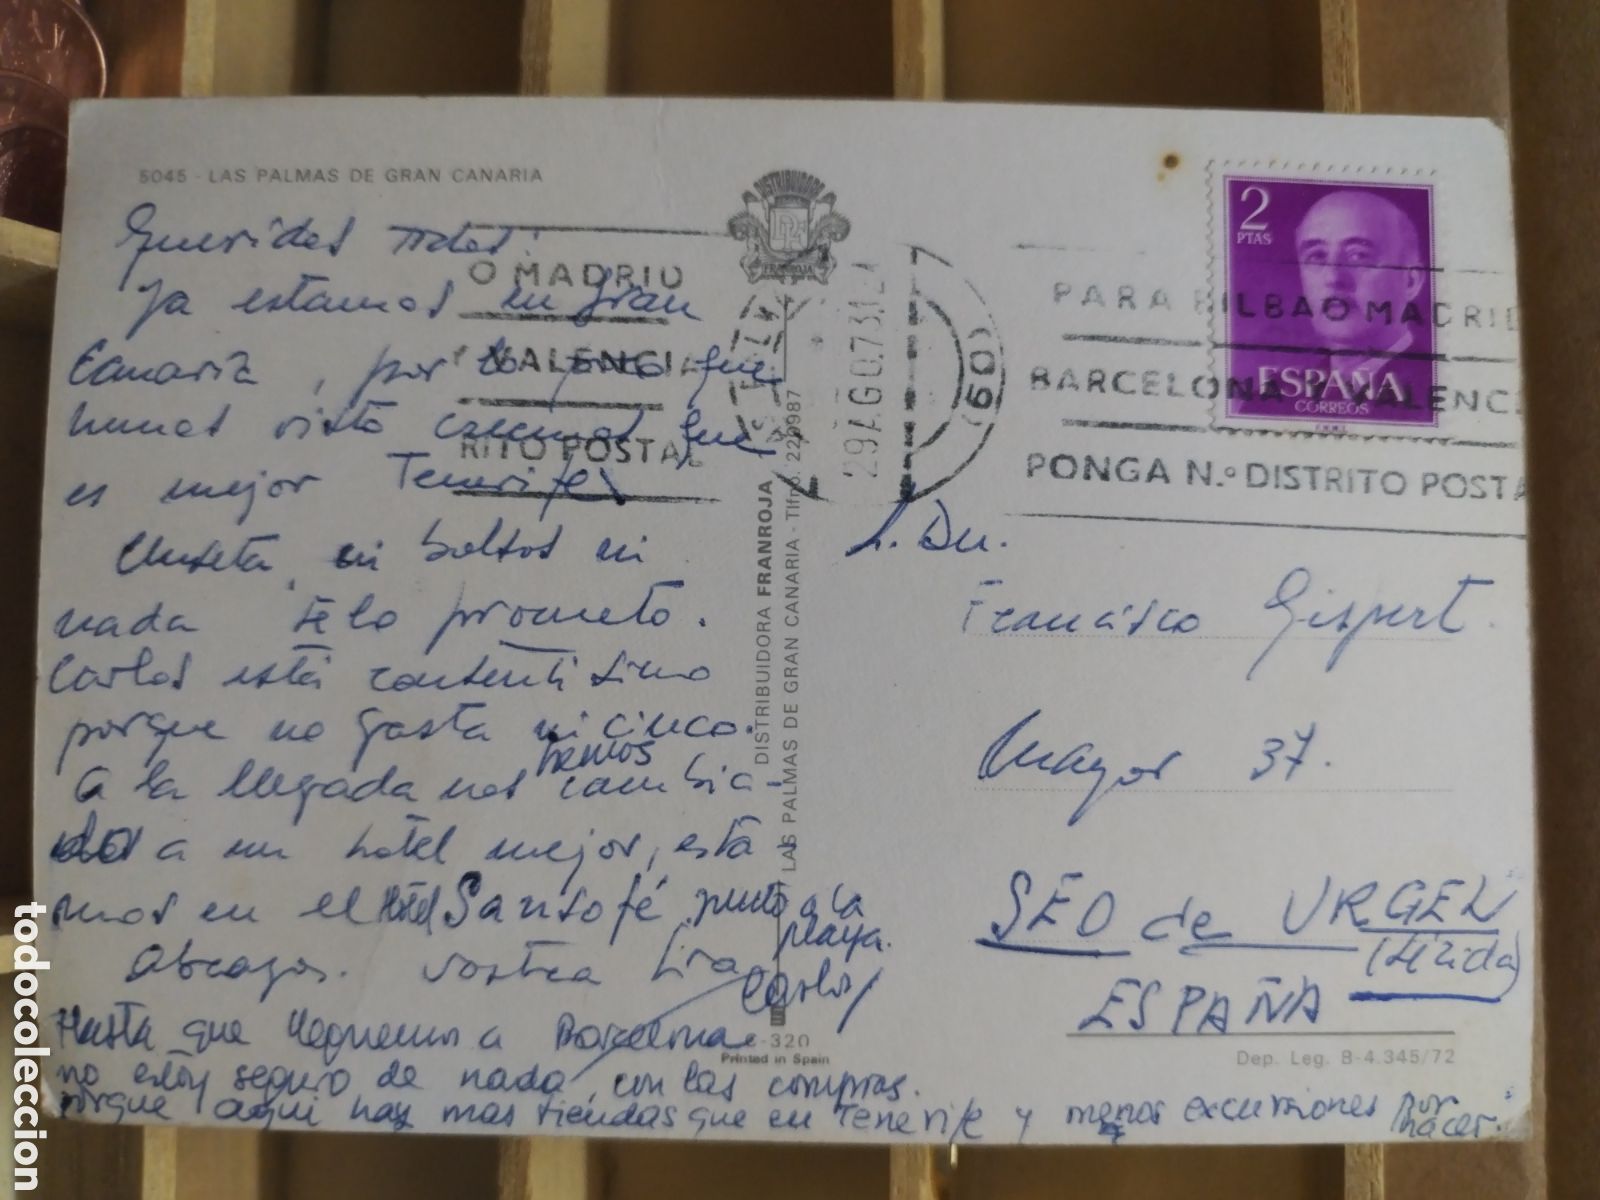 5045 - LAS PALMAS DE GRAN CANARIA
Queridos todos:
Ya estamos en Gran
Canaria, por lo poco que
hemos visto creemos que
es mejor Tenerife.
ni bolsos ni
nada te lo prometo.
Carlos está contentisimo
porque no gasta ni cinco.
A la llegada nos hemos cambia-
do a un hotel mejor, esta-
mos en el Hotel Sansofé junto a la
playa.
Abrazos. Vostra
Carlos
Hasta que lleguemos a Barcelona
no estoy seguro de nada, con las compras.
porque aqui hay mas tiendas que en Tenerife y menos excursiones por
hacer.
DISTRIBUIDORA
DR
FRANROJA
DISTRIBUIDORA FRANROJA
LAS PALMAS DE GRAN CANARIA - Tlfno. 220987
-320
Printed in Spain
O MADRID
Y VALENCIA
RITO POSTAL
29 AGO 73
(60)
PARA BILBAO MADRID
BARCELONA Y VALENCI
PONGA N.º DISTRITO POSTA
2
PTAS
ESPAÑA
CORREOS
Francisco Gispert.
Mayor 37.
SEO de URGEL
(Lérida)
ESPAÑA
Dep. Leg. B-4.345/72
todocoleccion